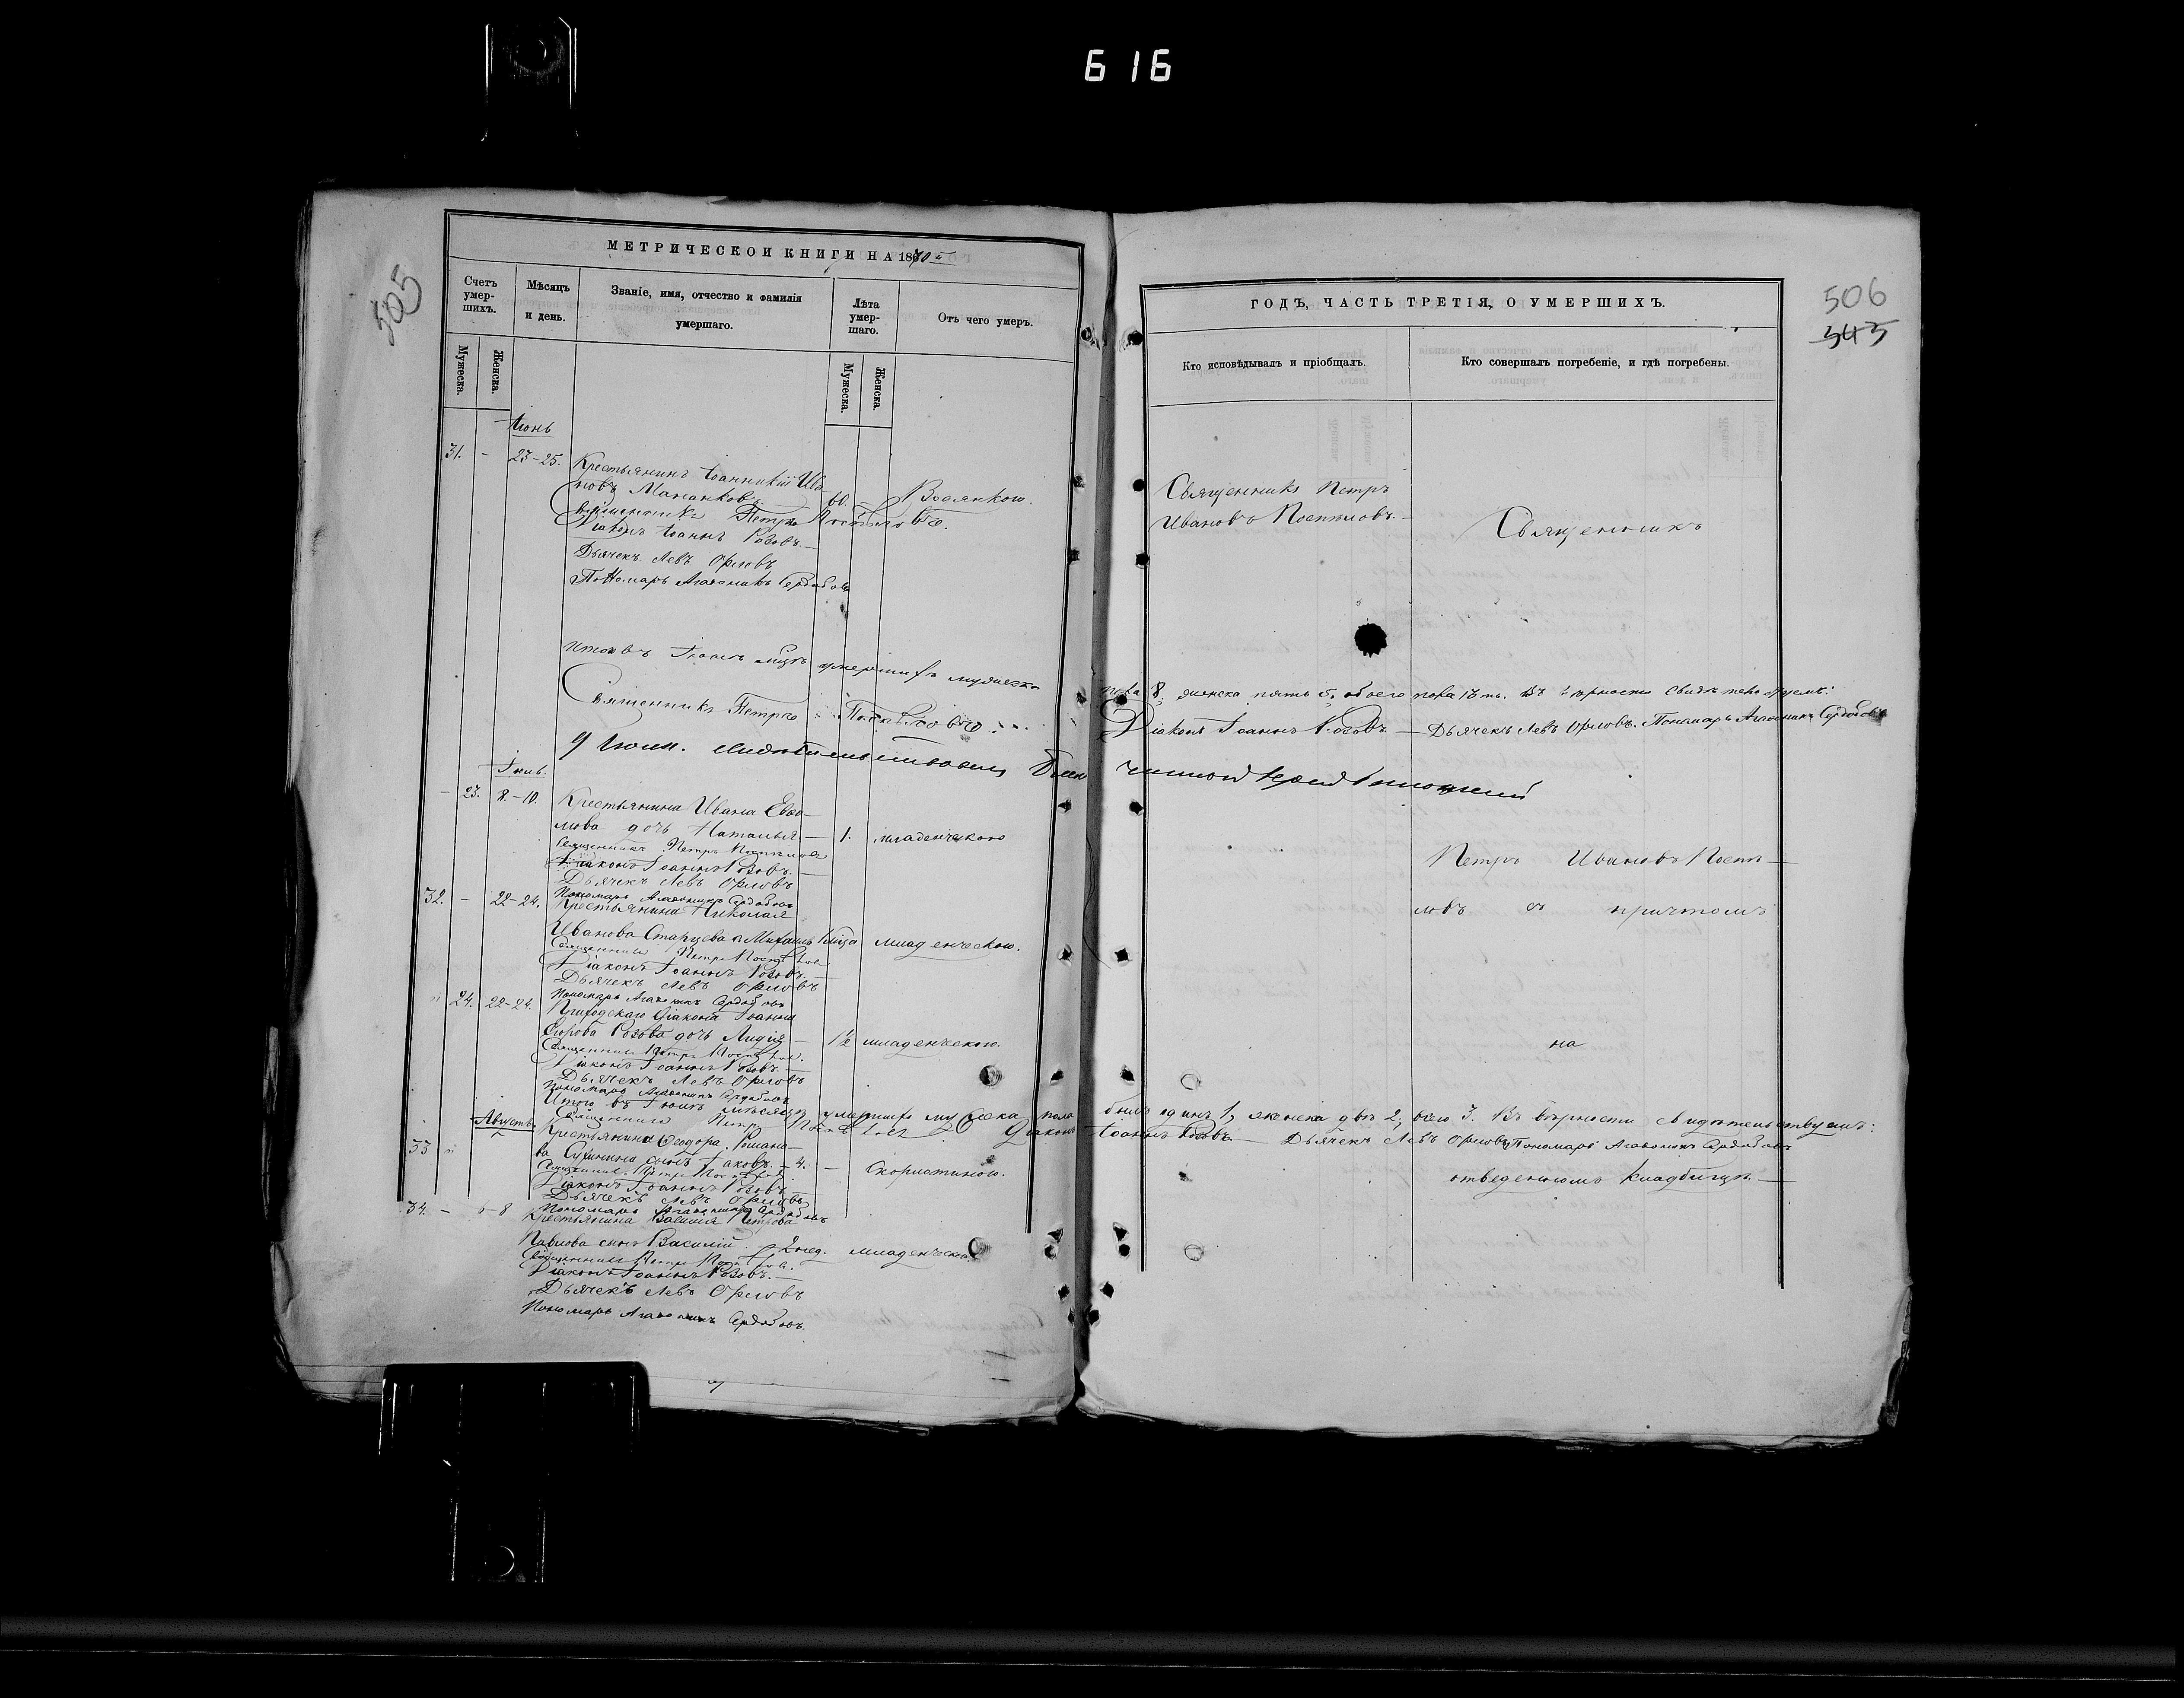 616
505
МЕТРИЧЕСКОЙ КНИГИ НА 1870й
Счетъ умер-шихъ.
Мѣсяцъ и день.
Званіе, имя, отчество и фамилія умершаго.
Лѣта умер-шаго.
Отъ чего умеръ.
Мужеска.
Женска.
Мужеска.
Женска.
Іюнь
31. - 23-25. Крестьянинъ Іоанникій Ива
новъ Мананковъ 60. - Водянкою.
Священникъ Петръ Поспѣловъ.
Діаконъ Іоаннъ Розовъ.
Дьячекъ Левъ Орловъ
Пономарь Агаѳоникъ Сердобовъ
Итого въ Іюнѣ умершихъ мужеска
Священникъ Петръ Поспѣловъ
9 Іюля.
Іюль.
- 23. 8.-10. Крестьянина Ивана Евдо-
мова дочь Наталья - 1. младенческою
Священникъ Петръ Поспѣловъ
Діаконъ Іоаннъ Розовъ.
Дьячекъ Левъ Орловъ
Пономарь Агаѳоникъ Сердобовъ
32. - 22-24. Крестьянина Николая
Иванова Старцева с. Михаилъ младенческою.
Священникъ Петръ Поспѣловъ
Діаконъ Іоаннъ Розовъ.
Дьячекъ Левъ Орловъ
Пономарь Агаѳоникъ Сердобовъ
" 24. 22-24. Приходскаго діакона Іоанна
Розова дочь Лидія - 1½ младенческою.
Священникъ Петръ Поспѣловъ.
Діаконъ Іоаннъ Розовъ.
Дьячекъ Левъ Орловъ
Пономарь Агаѳоникъ Сердобовъ
Итого въ Іюлѣ мѣсяцѣ умерших мужеска пола
Священникъ Петръ Поспѣловъ Діаконъ
Августъ.
33 " Крестьянина Ѳеодора Романо-
ва сынъ Іаковъ. - 4. - Скорлатиною.
Священникъ Петръ Поспѣловъ
Діаконъ Іоаннъ Розовъ
Дьячекъ Левъ Орловъ
Пономарь Агаѳоникъ Сердобовъ
34. - 8 Крестьянина Василія Петрова
Павлова сынъ Василій. 2 нед. младенческою
Священникъ Петръ Поспѣловъ.
Діаконъ Іоаннъ Розовъ.
Дьячекъ Левъ Орловъ
Пономарь Агаѳоникъ Сердобовъ.
506
343
ГОДЪ, ЧАСТЬ ТРЕТІЯ, О УМЕРШИХЪ.
Кто исповѣдывалъ и пріобщалъ.
Кто совершалъ погребеніе, и гдѣ погребены.
Священникъ Петръ
Ивановъ Поспѣловъ.
Священникъ
пола 8. женска пять 5. обоего пола 13ть. Въ вѣрности свидѣтельствуемъ:
Діаконъ Іоаннъ Розовъ. - Дьячекъ Левъ Орловъ. Пономарь Агаѳоникъ Сердобовъ
Петръ Ивановъ Поспѣ-
ловъ съ причтомъ
на
былъ единъ 1, женска двѣ 2, всего 3. Въ вѣрности свидѣтельствуемъ:
Іоаннъ Розовъ. - Дьячекъ Левъ Орловъ Пономарь Агаѳоникъ Сердобовъ
отведенномъ кладбищѣ.